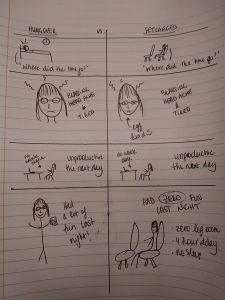 HUNGOVER vs JETLAGGED
"Where did the time go?" "Where did the time go?"
HEAD ACHE
+ TIRED
HEAD ACHE
+ TIRED
unproductive
the next day
unproductive
the next day
Had
a lot of
fun last
night!
HAD ZERO FUN
LAST NIGHT
- zero leg room
- 4 hour delay
- no sleep